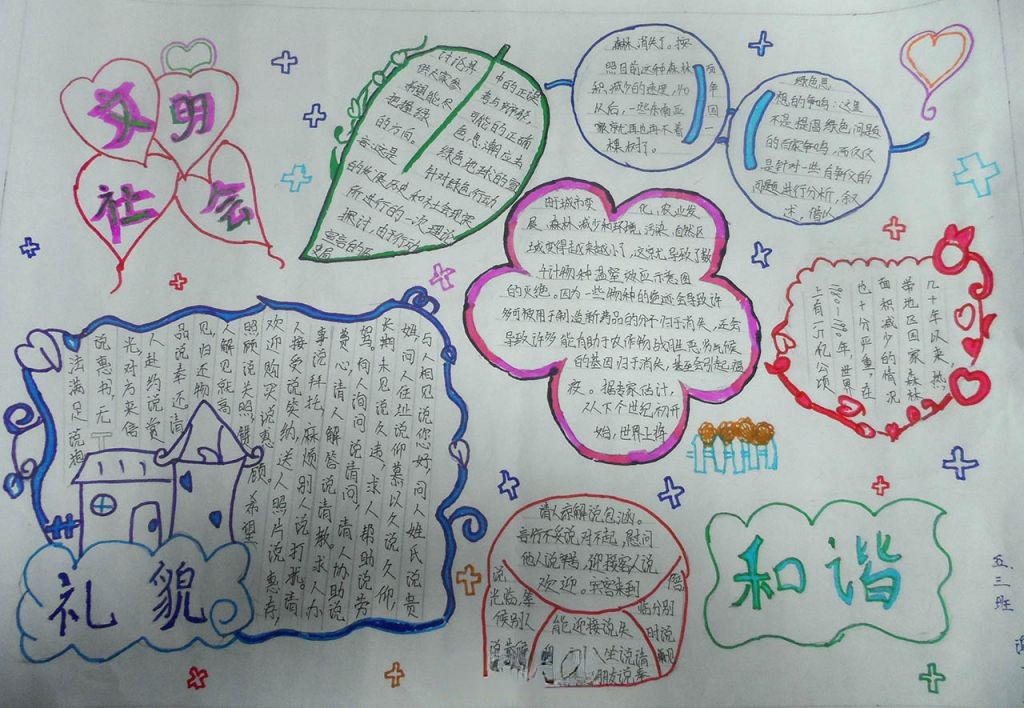 文明
社会
讨论界中的正误
供大家参考与辨析,
希望能尽可能的正确
把握绿色思潮应去
的方向。绿色地球的宣
言:这是针对绿色行动
的发展历史和社会现实
所进行的一次理论
探讨,由于行动
宣言的
森林消失了。按
照目前这种森林面
积减少的速度,40年
以后,一些东南亚国
家就再也再不着一
棵树了。
绿色思
想的争鸣:这里
不是提倡绿色问题
的百家争鸣,而仅仅
是针对一些有争议的
问题进行分析,叙
述,借以
由于城市变化,农业发
展,森林减少和环境污染,自然区
域变得越来越小了,这就导致了数
十计物种温室效应示意图
的灭绝。因为一些物种的绝迹会导致许
多可被用于制造新药品的分子归于消失,还会
导致许多能有助于农作物战胜恶劣气候
的基因归于消失,甚至会引起瘟
疫。据专家估计,
从下个世纪初开
始,世界上将
几十年以来,热
带地区国家森林
面积减少的情况
也十分严重,在
1980—1990年,世界
上有1.5亿公顷
与人相见说你好,问人姓氏说贵
姓,问人住址说仰慕以久说久仰,
长期未见说久违,求人帮助说劳
驾,向人询问说请问,请人协助说
费心,请人解答说请教,求人办
事说拜托,麻烦别人说打扰。请
人接受说笑纳,送人照片说惠存,
欢迎购买说惠顾。希望
照顾说关照,
人解见就高
见,归还物
品说奉还,请
人赴约说赏
光,对方来信
说惠书,无
法满足说抱
礼貌
请人谅解说包涵。
言行不妥说对不起,慰问
他人说辛苦,迎接客人说
欢迎。宾客来到
说
光临,等
候别人
说恭候
能迎接说失
人坐说请
朋友说奉
临分别
时说
和谐
五、三班